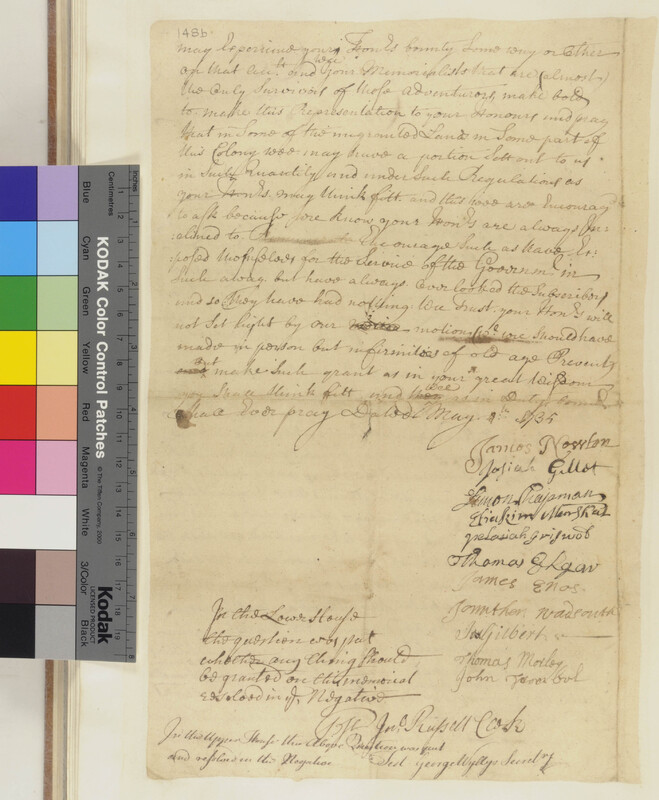 148b
may Experience your Hon.rs bounty Some way or other
on that acc.tt and wee your Memorialists that are (almost)
the only Survivors of those adventurers, make bold
to make this Representation to your Honours and pray
that in Some of the ungranted Land in Some part of
this Colony wee may have a portion Sett out to us
in Such Quantity and under Such Regulations as
your Hon.rs may think fitt and this wee are Encourag.d
to ask because wee know your Hon.rs are always In=
=clined to Encourage Such as have Ex=
posed themselves for the Service of the Governm.t in
Such a way but have always over looked the Subscribers
and so they have had nothing. Wee trust your Hon.rs will
not Set light by our motion wee Should have
made in person but infirmities of old age Prevents
but make Such grant as in your great Wisdom
you Shall think fitt and wee as in Duty bound
Shall Ever pray Dated May 1735
James Newton
Josiah Gillet
Simon Chapman
Eliakim Marshal
Josiah Griswob
Thomas Elgar
James Enos.
Jonathan wadsouth
Jn.o Gilbert
Thomas Morley
John
In the Lower House
the question was put
whether any thing Should
be granted on this memorial
resolved in y.e Negative
Test Jn.o Russell Clerk
In the Upper House the Above Question was put
and resolved in the Negative
Test George Wyllys Secretry
Inches
Centimetres
KODAK Color Control Patches
© The Tiffen Company, 2000
Blue
Cyan
Green
Yellow
Red
Magenta
White
3/Color
Black
Kodak
LICENSED PRODUCT
1
2
3
4
5
6
7
8
9
10
11
12
13
14
15
16
17
18
19